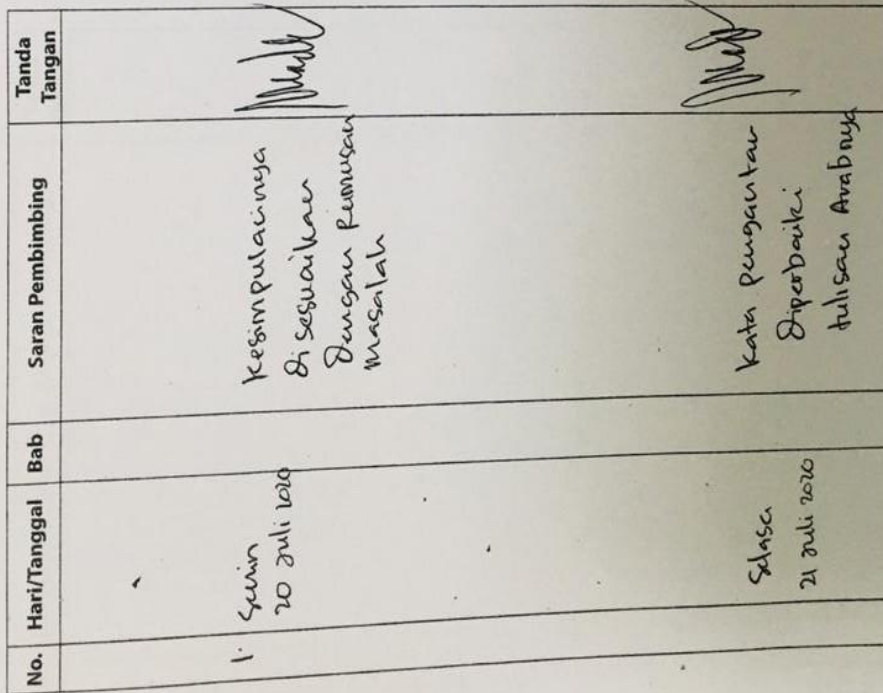 No. Hari/Tanggal Bab Saran Pembimbing Tanda Tangan
1. Senin
20 Juli 2020
Kesimpulannya
Disesuaikan
Dengan Rumusan
Masalah
Selasa
21 Juli 2020
Kata pengantar
Diperbaiki
tulisan Arabnya